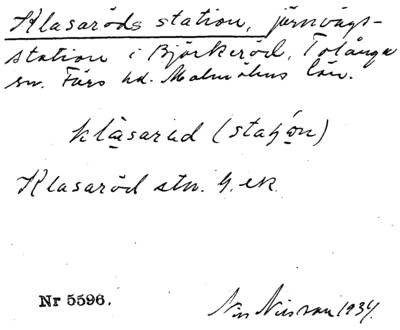 Klasaröds station, järnvägs-
station i Björkeröd, Tolånga
sn. Färs hd. Malmöhus län.
klasarad (station)
Klasaröd stn. G. ek
Nr 5596.
Nilsson 1934.